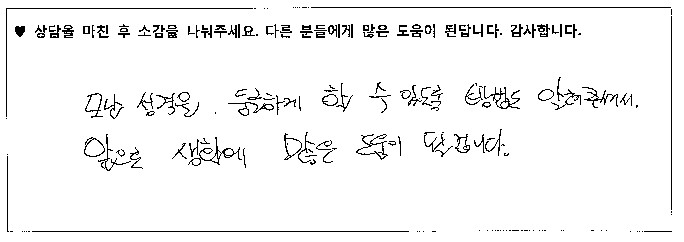 ♥ 상담을 마친 후 소감을 나눠주세요. 다른 분들에게 많은 도움이 된답니다. 감사합니다.
모난 성격을. 둥글하게 할 수 있는 방법도 알려주셔서.
앞으로 생활에 많은 도움이 될겁니다.